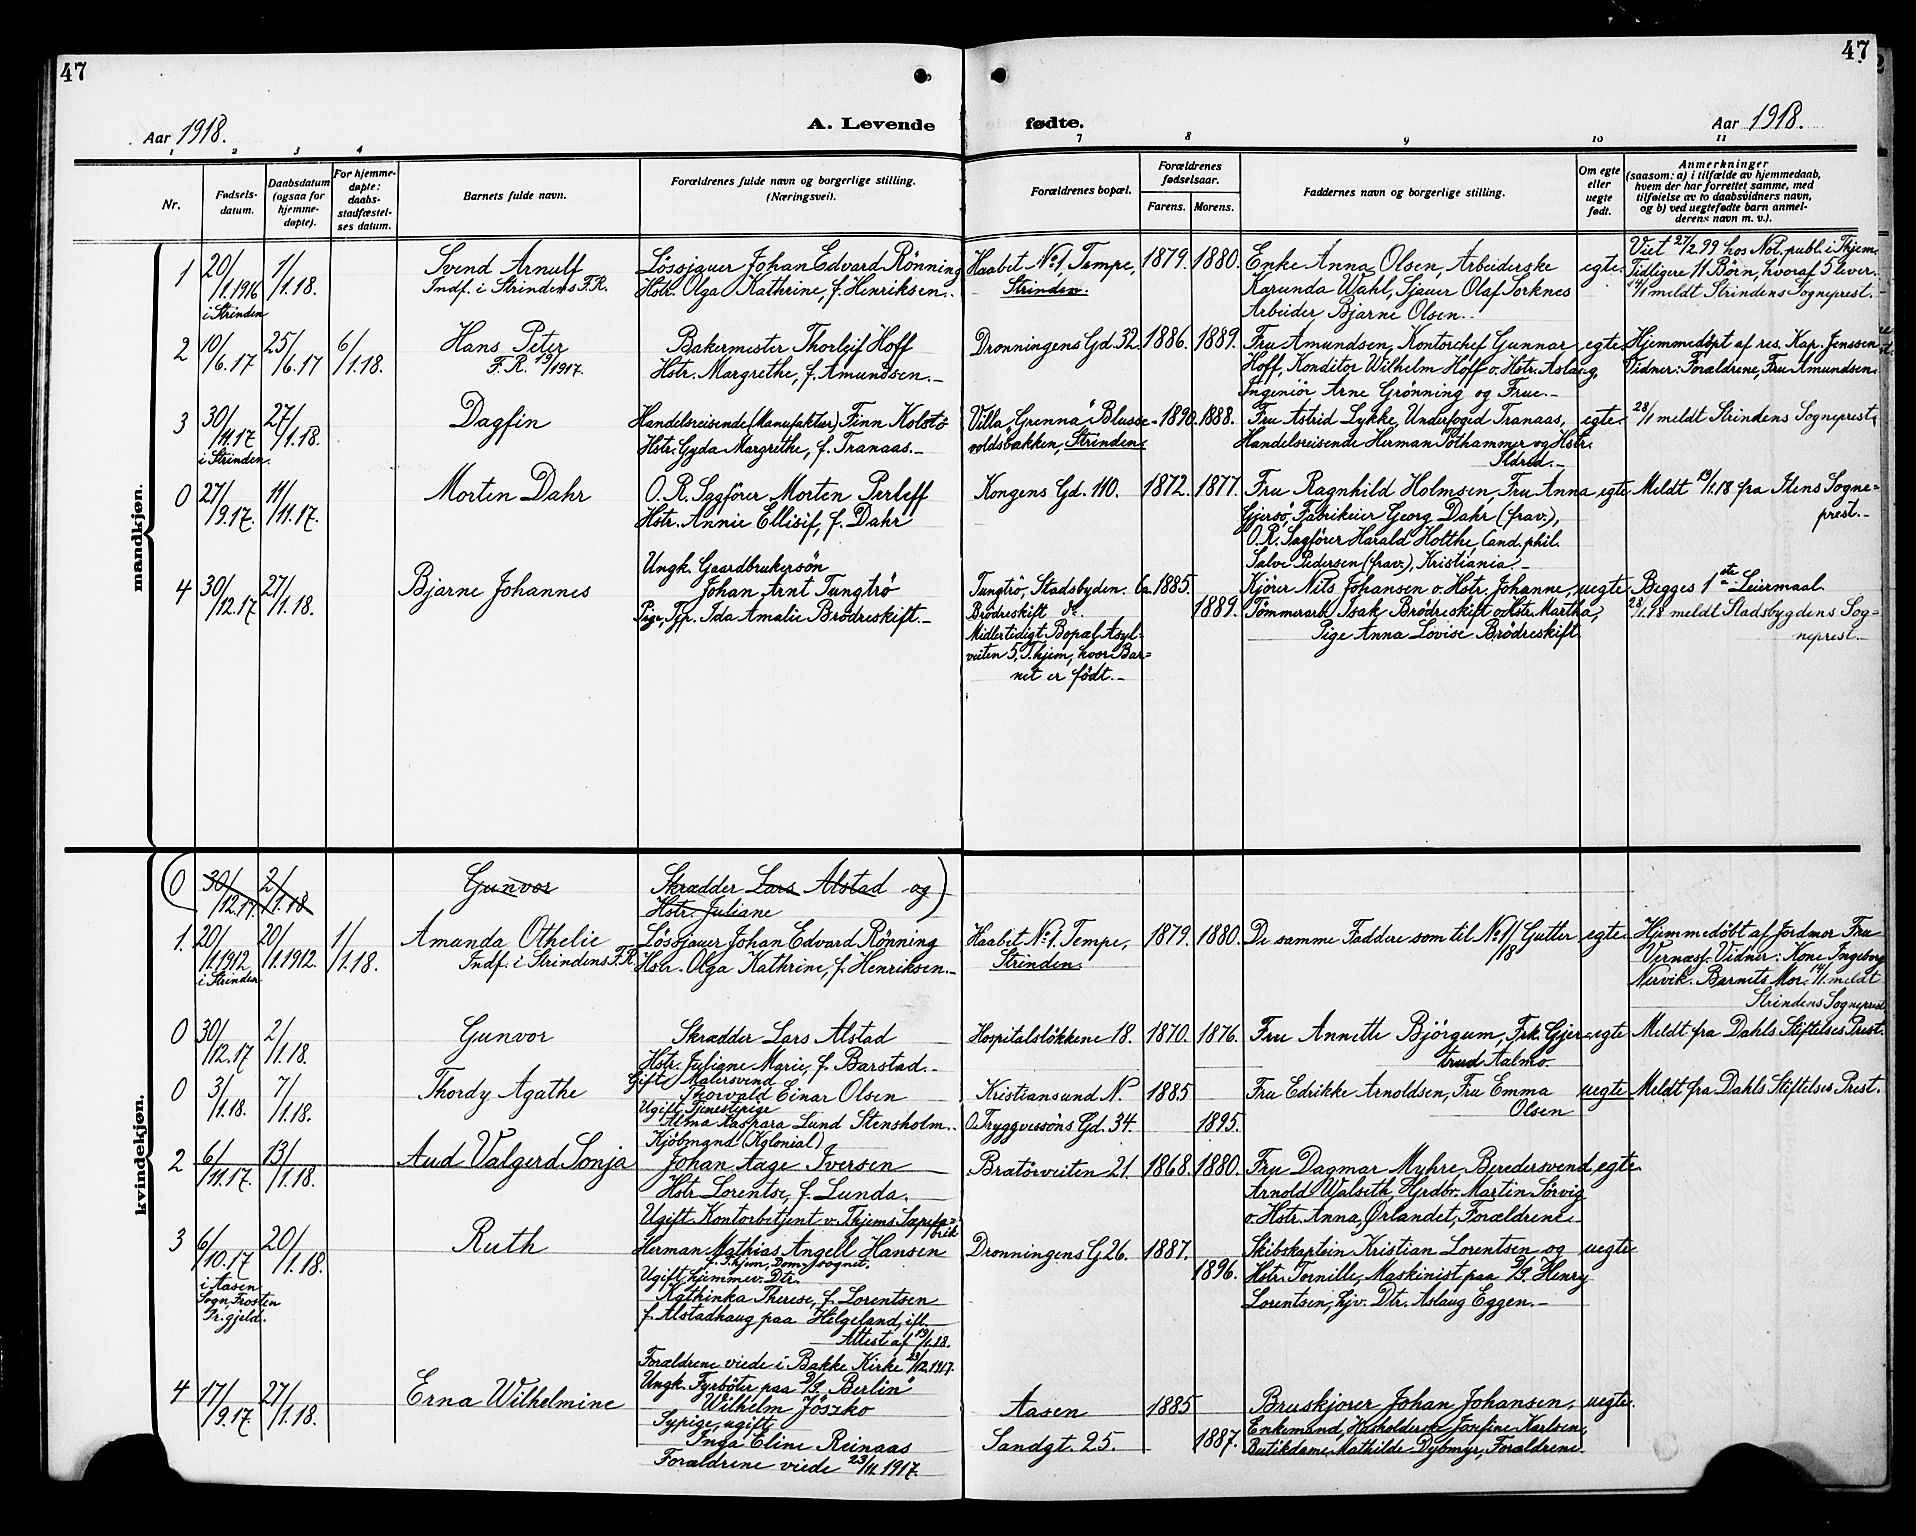 47
47
Aar 1918.
A. Levende
fødte.
Aar 1918.
1 2 3 4 7 8 9 10 11
Nr.
Fødsels-
datum.
Daabsdatum
(ogsaa for
hjemme-
døpte).
For hjemme-
døpte:
daabs-
stadfæstel-
ses datum.
Barnets fulde navn.
Forældrenes fulde navn og borgerlige stilling.
(Næringsvei).
Forældrenes bopæl.
Forældrenes
fødselsaar.
Farens. Morens.
Faddernes navn og borgerlige stilling.
Om egte
eller
uegte
født.
Anmerkninger
(saasom: a) i tilfælde av hjemmedaab,
hvem der har forrettet samme, med
tilføielse av to daabsvidners navn,
og b) ved uegtefødte barn anmel-
derens navn m. v.).
mandkjøn.
1
20/1.1916
i Strinden
1/1.18.
Svend Arnulf
Indf. i Strindens F.R.
Løssjauer Johan Edvard Rönning
Hstr. Olga Kathrine, f. Henriksen.
Haabet No 1, Tempe,
Strinden.
1879. 1880.
Enke Anna Olsen, Arbeiderske
Karunda Wahl, Sjauer Olaf Torknes
Arbeider Bjarne Olsen.
egte.
Viet 27/2 99 hos Not. publ. i Thjem
Tidligere 11 Børn, hvoraf 5 lever.
14/1 meldt Strindens Sogneprest.
2
10/6.17
25/6.17
6/1.18.
Hans Peter
F.R. 19/1917.
Bakermester Thorleif Hoff
Hstr. Margrethe, f. Amundsen.
Dronningens Gd. 32.
1886. 1889.
Fru Amundsen, Kontorchef Gunnar
Hoff, Konditor Wilhelm Hoff o. Hstr. Aslaug,
Ingeniör Arne Grönning og Frue.
egte.
Hjemmedöpt af res. Kap. Jenssen
Vidner: Forældrene, Fru Amundsen.
3
30/11.17
i Strinden.
27/1.18.
Dagfin
Handelsreisende (Manufaktur) Finn Kolstö
Hstr. Gyda Margrethe, f. Tranaas.
Villa "Grenna" Blusse-
voldsbakken, Strinden.
1890. 1888.
Fru Astrid Lykke, Underfoged Tranaas,
Handelsreisende Herman Pothammer og Hstr.
Ildred.
egte.
28/1 meldt Strindens Sogneprest.
0
27/9.17.
11/11.17.
Morten Dahr
O. R. Sagförer Morten Perleff
Hstr. Annie Ellisif, f. Dahr
Kongens Gd. 110.
1872. 1877.
Fru Ragnhild Holmsen, Fru Anna
Gjersö, Fabrikeier Georg Dahr (frav.),
O.R. Sagförer Harald Holthe, Cand. phil.
Salve Pedersen (frav.), Kristiania.
egte
Meldt 19/1.18 fra Ilens Sogne-
prest.
4
30/12.17
27/1.18.
Bjarne Johannes
Ungk. Gaardbrukersön
Johan Arnt Tungtrö
Pige, Tjp. Ida Amalie Brödreskift.
Tungtrö, Stadsbyden.
Brödreskift do
Midlertidigt Bopæl Asyl-
veiten 5, T.hjem, hvor Bar-
net er född.
ca 1885.
1889.
Kjörer Nils Johansen o. Hstr. Johanne,
Tömmerarb. Isak Brödreskift o. Hstr. Martha,
Pige Anna Lovise Brödreskift
uegte
Begges 1ste Leiermaal.
28/1.18 meldt Stadsbygdens Sog-
neprest.
kvindekjøn.
(0
30/12.17.
2/1.18
Gunvor
Skrædder Lars Alstad og)
Hstr. Juliane
1.
20/1.1912
i Strinden
20/1.1912.
1/1.18.
Amanda Othelie
Indf. i Strindens F.R.
Løssjauer Johan Edvard Rönning
Hstr. Olga Kathrine, f. Henriksen.
Haabet No 1. Tempe,
Strinden.
1879. 1880.
De samme Faddere som til No 1/18 Gutter
egte.
Hjemmedöbt af Jordmor Fru
Vernæs. Vidner: Kone Ingeborg
Nervik. Barnets Mor. 14/1. meldt
Strindens Sogneprest
0
30/12.17
2/1.18.
Gunvor
Skrædder Lars Alstad
Hstr. Juliane Marie, f. Barstad.
Hospitalslökkene 18.
1870. 1876.
Fru Annette Björgum, Frk. Gjer-
trud Aalmo
egte
Meldt fra Dahls Stiftelses Prest.
0
3/1.18.
7/1.18.
Thordy Agathe
Gift Malersvend
Thorvald Einar Olsen
Ugift Tjenestepige
Alma Kaspara Lund Stensholm.
Kristiansund N.
O. Tryggvessöns Gd. 34.
1885
1895.
Fru Edrikke Arnoldsen, Fru Emma
Olsen
uegte
Meldt fra Dahls Stiftelses Prest.
2
6/11.17.
13/1.18.
Aud Valgerd Sonja
Kjöbmand (Kolonial)
Johan Aage Iversen
Hstr. Lorentse, f. Lunda.
Bratörveiten 21.
1868. 1880.
Fru Dagmar Myhre, Beredersvend
Arnold Walseth, Gjrdbr. Martin Sörvig
o. Hstr. Anna, Ørlandet, Forældrene.
egte.
3
6/10.17
i Aasen
Sogn, Frosten
Pr.gjeld.
20/1.18.
Ruth
Ugift Kontorbetjent v. Thjems Sæpefa-
brik
Herman Mathias Angell Hansen
f. T.hjem, Domsognet.
Ugift, hjemmev. Dtr.
Kathinka Therese, f. Lorentsen
f. Alstadhaug paa Helgeland, ifl.
Attest af 19/1.18.
Forældrene viede i Bakke Kirke 23/12.1917.
Dronningens G. 26.
1887.
1896.
Skibskaptein Kristian Lorentsen og
Hstr. Tornille, Maskinist paa D/S. Henry
Lorentsen, hjv. Dtr. Aslaug Eggen.
uegte
4
17/9.17.
27/1.18.
Erna Wilhelmine
Ungk. Fyrböter paa D/S. "Berlin"
Wilhelm Jöszko
Sypige, ugift
Inga Eline Reinaas
Forældrene viede 23/11.1917.
Aasen
Sandgt. 25.
1885
1887.
Bruskjører Johan Johansen,
Enkemand, Husholderske Josefine Karlsen,
Butikdame Mathilde Dybmyr, Forældrene.
uegte.